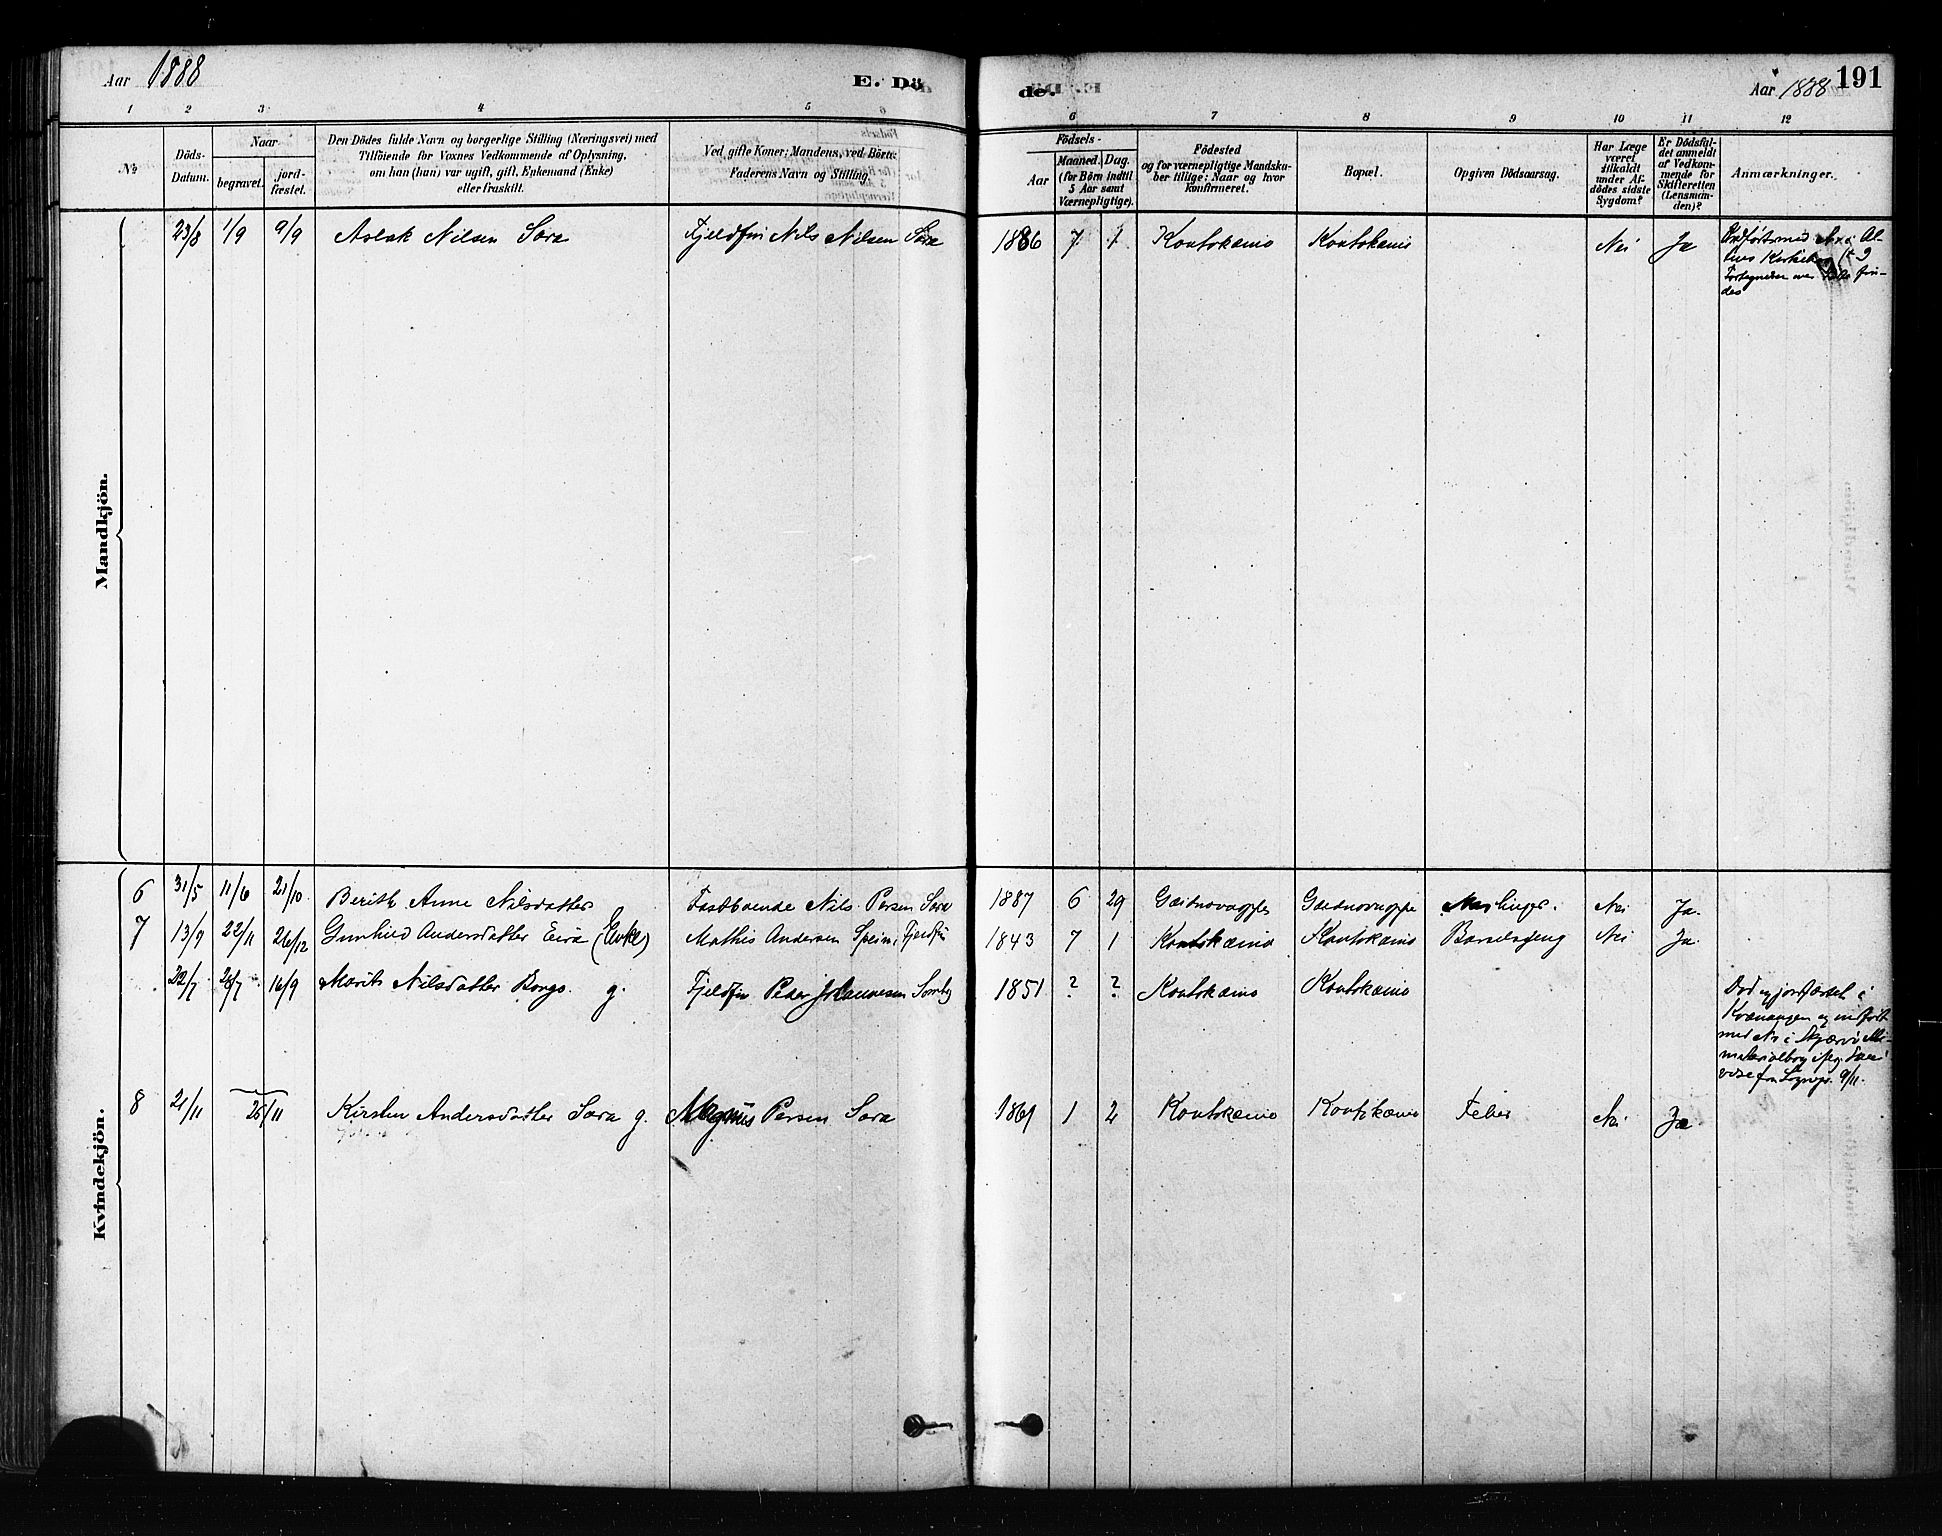 Aar 1888 E. Dö
de. Aar 1888 191
1 2 3 4 5 6 7 8 9 10 11 12
№
Döds-Datum.
Naar
begravet.
jord-fæstet.
Den Dödes fulde Navn og borgerlige Stilling (Næringsvei) med
Tilföiende for Voxnes Vedkommende af Oplysning,
om han (hun) var ugift, gift, Enkemand (Enke)
eller fraskilt.
Ved gifte Koner: Mandens, ved Börn:
Faderens Navn og Stilling.
Födsels-
Aar
Maaned. Dag.
(for Börn indtil
5 Aar samt
Værnepligtige).
Födested
og for værnepligtige Mandska-
ber tillige: Naar og hvor
konfirmeret.
Bopæl.
Opgiven Dödsaarsag.
Har Læge
været
tilkaldt
under Af-
dödes sidste
Sygdom?
Er Dödsfal-
det anmeldt
af Vedkom-
mende for
Skifteretten
(Lensman-
den)?
Anmærkninger.
Mandkjön.
23/8 1/9 9/9 Aslak Nilsen Sara Fjeldfin Nils Nilsen Sara 1886 7 1 Koutokæino Koutokæino Nei Ja
Kvindekjön.
6 31/5 11/6 21/10 Berith Anne Nilsdatter Fastboende Nils Persen Sara 1887 6 29 Gæidnovuoppe Gæidnovuoppe Meslinger. Nei Ja.
7 13/9 22/11 26/12 Gunhild Andersdatter Eira (Enke) Mathis Andersen Spein, Fjeldfin 1843 7 1 Koutokæino Koutokæino Barselseng Nei Ja
22/7 28/7 16/9 Marit Nilsdatter Bongo. g. Fjeldfin Peder Johannesen Somby 1851 ? ? Koutokæino Koutokæino
Död og jordfæstet i
Kvænangen og indfört
med No i Skjervö Mi-
nisterialbog
8 21/11 25/11 Kirsten Andersdatter Sara g. Magnus Persen Sara 1861 1 2 Koutokæino Koutokæino Feber Nei Ja